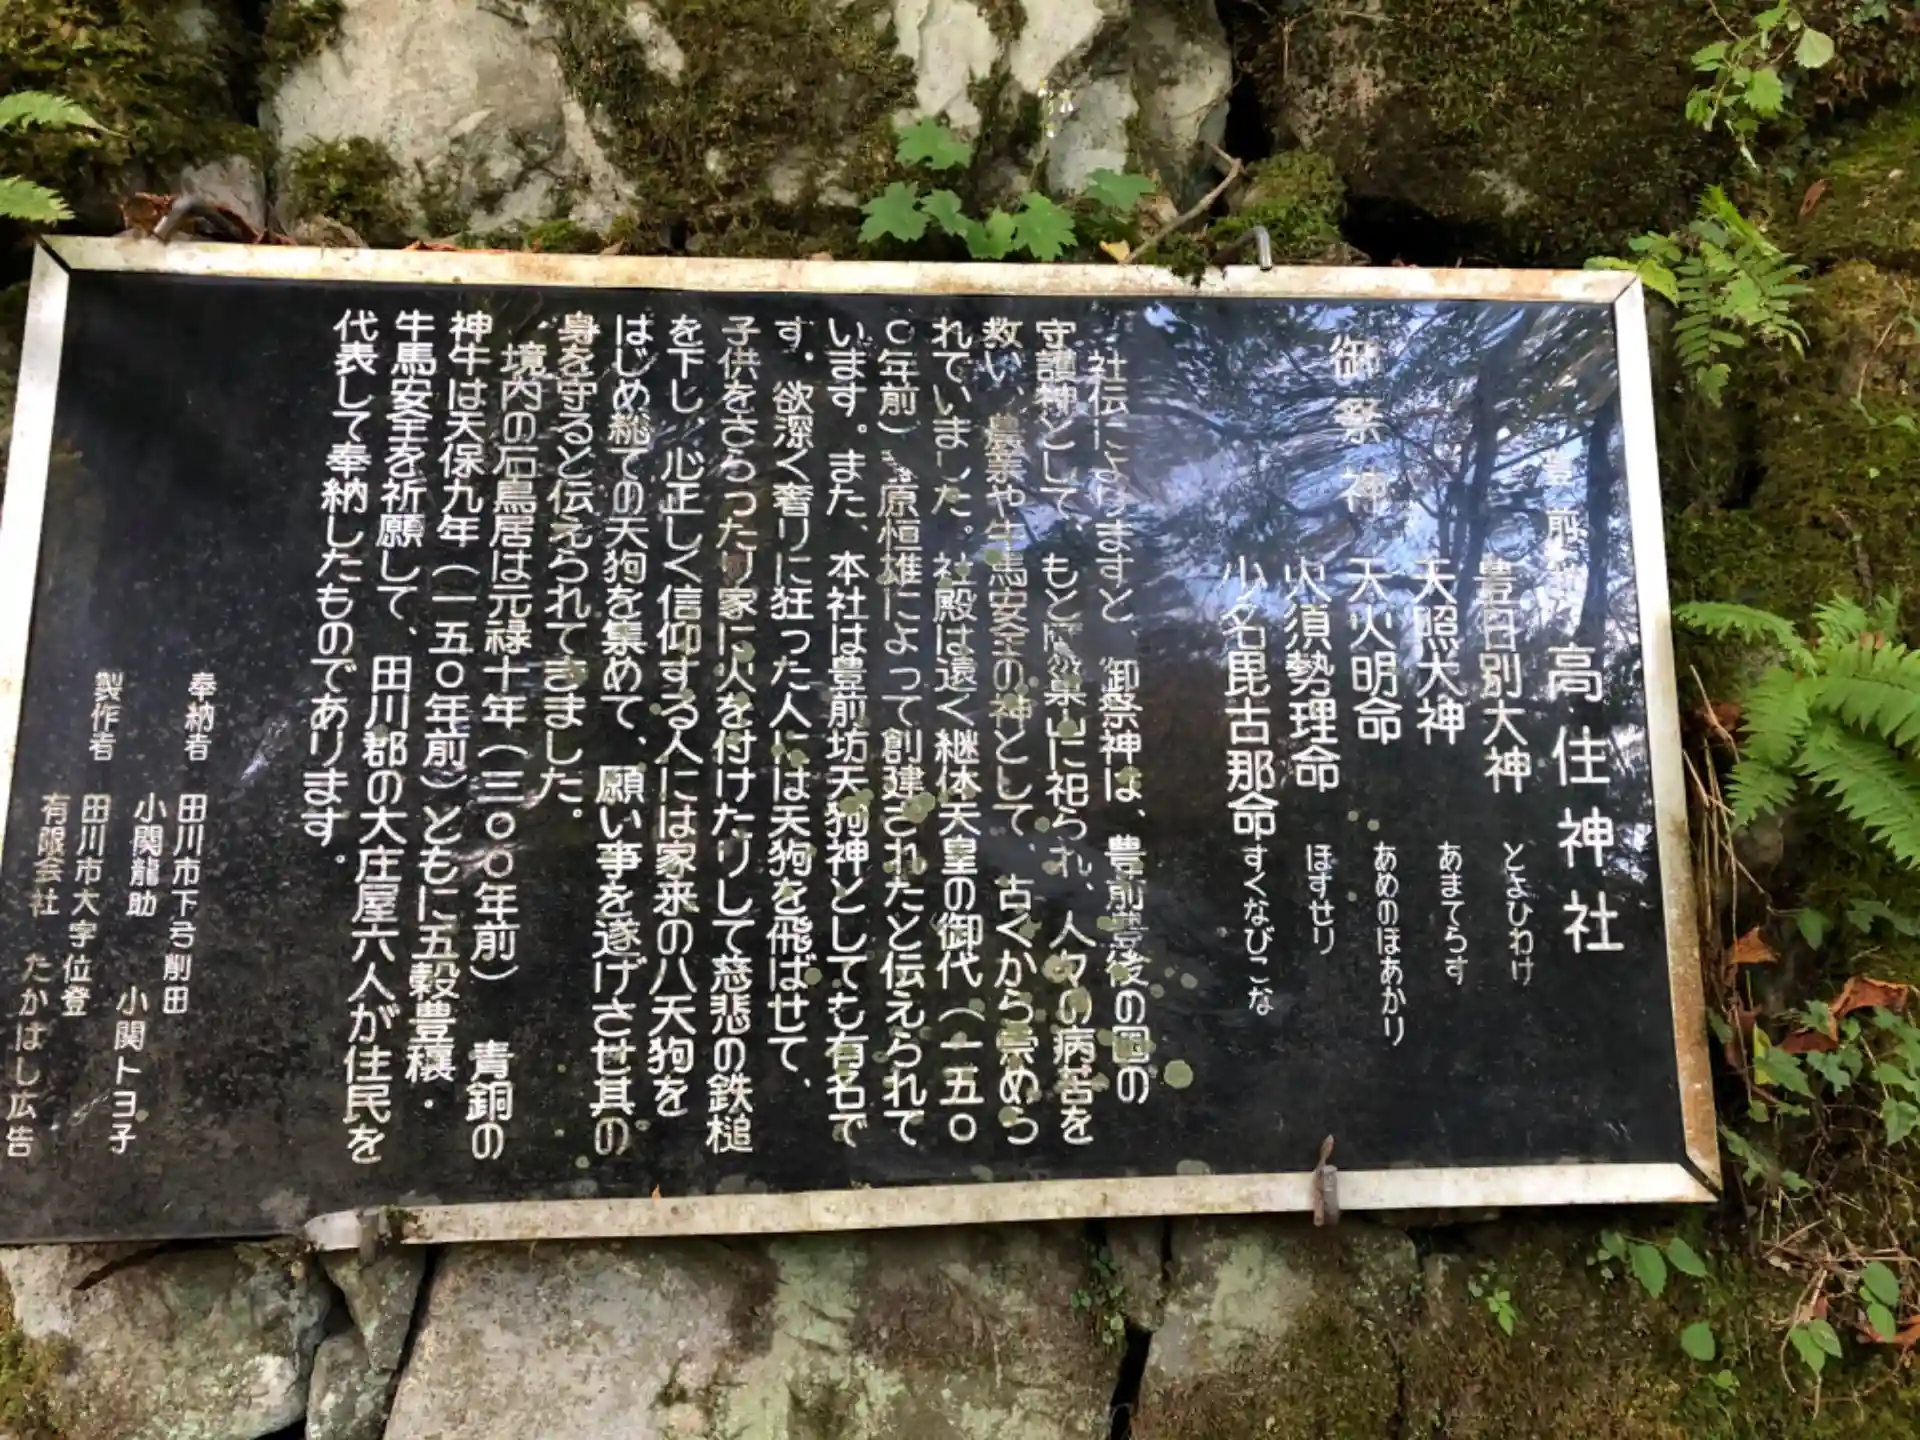 豊前坊 高住神社
御祭神
豊日別大神 とよひわけ
天照大神 あまてらす
天火明命 あめのほあかり
火須勢理命 ほすせり
少名毘古那命 すくなびこな
社伝によりますと、御祭神は、豊前豊後の国の
守護神として、もと に祀られ、人々の病苦を
救い、農業や牛馬安全の神として、古くから崇めら
れていました。社殿は遠く継体天皇の御代（一五〇
〇年前）、 原恒雄によって創建されたと伝えられて
います。また、本社は豊前坊天狗神としても有名で
す。欲深く奢りに狂った人には天狗を飛ばせて、
子供をさらったり家に火を付けたりして慈悲の鉄槌
を下し、心正しく信仰する人には家来の八天狗を
はじめ総ての天狗を集めて、願い事を遂げさせ其の
身を守ると伝えられてきました。
境内の石鳥居は元禄十年（三〇〇年前） 青銅の
神牛は天保九年（一五〇年前）ともに五穀豊穣・
牛馬安全を祈願して、田川郡の大庄屋六人が住民を
代表して奉納したものであります。
奉納者 田川市下弓削田
小関龍助 小関トヨ子
製作者 田川市大字位登
有限会社 たかはし広告